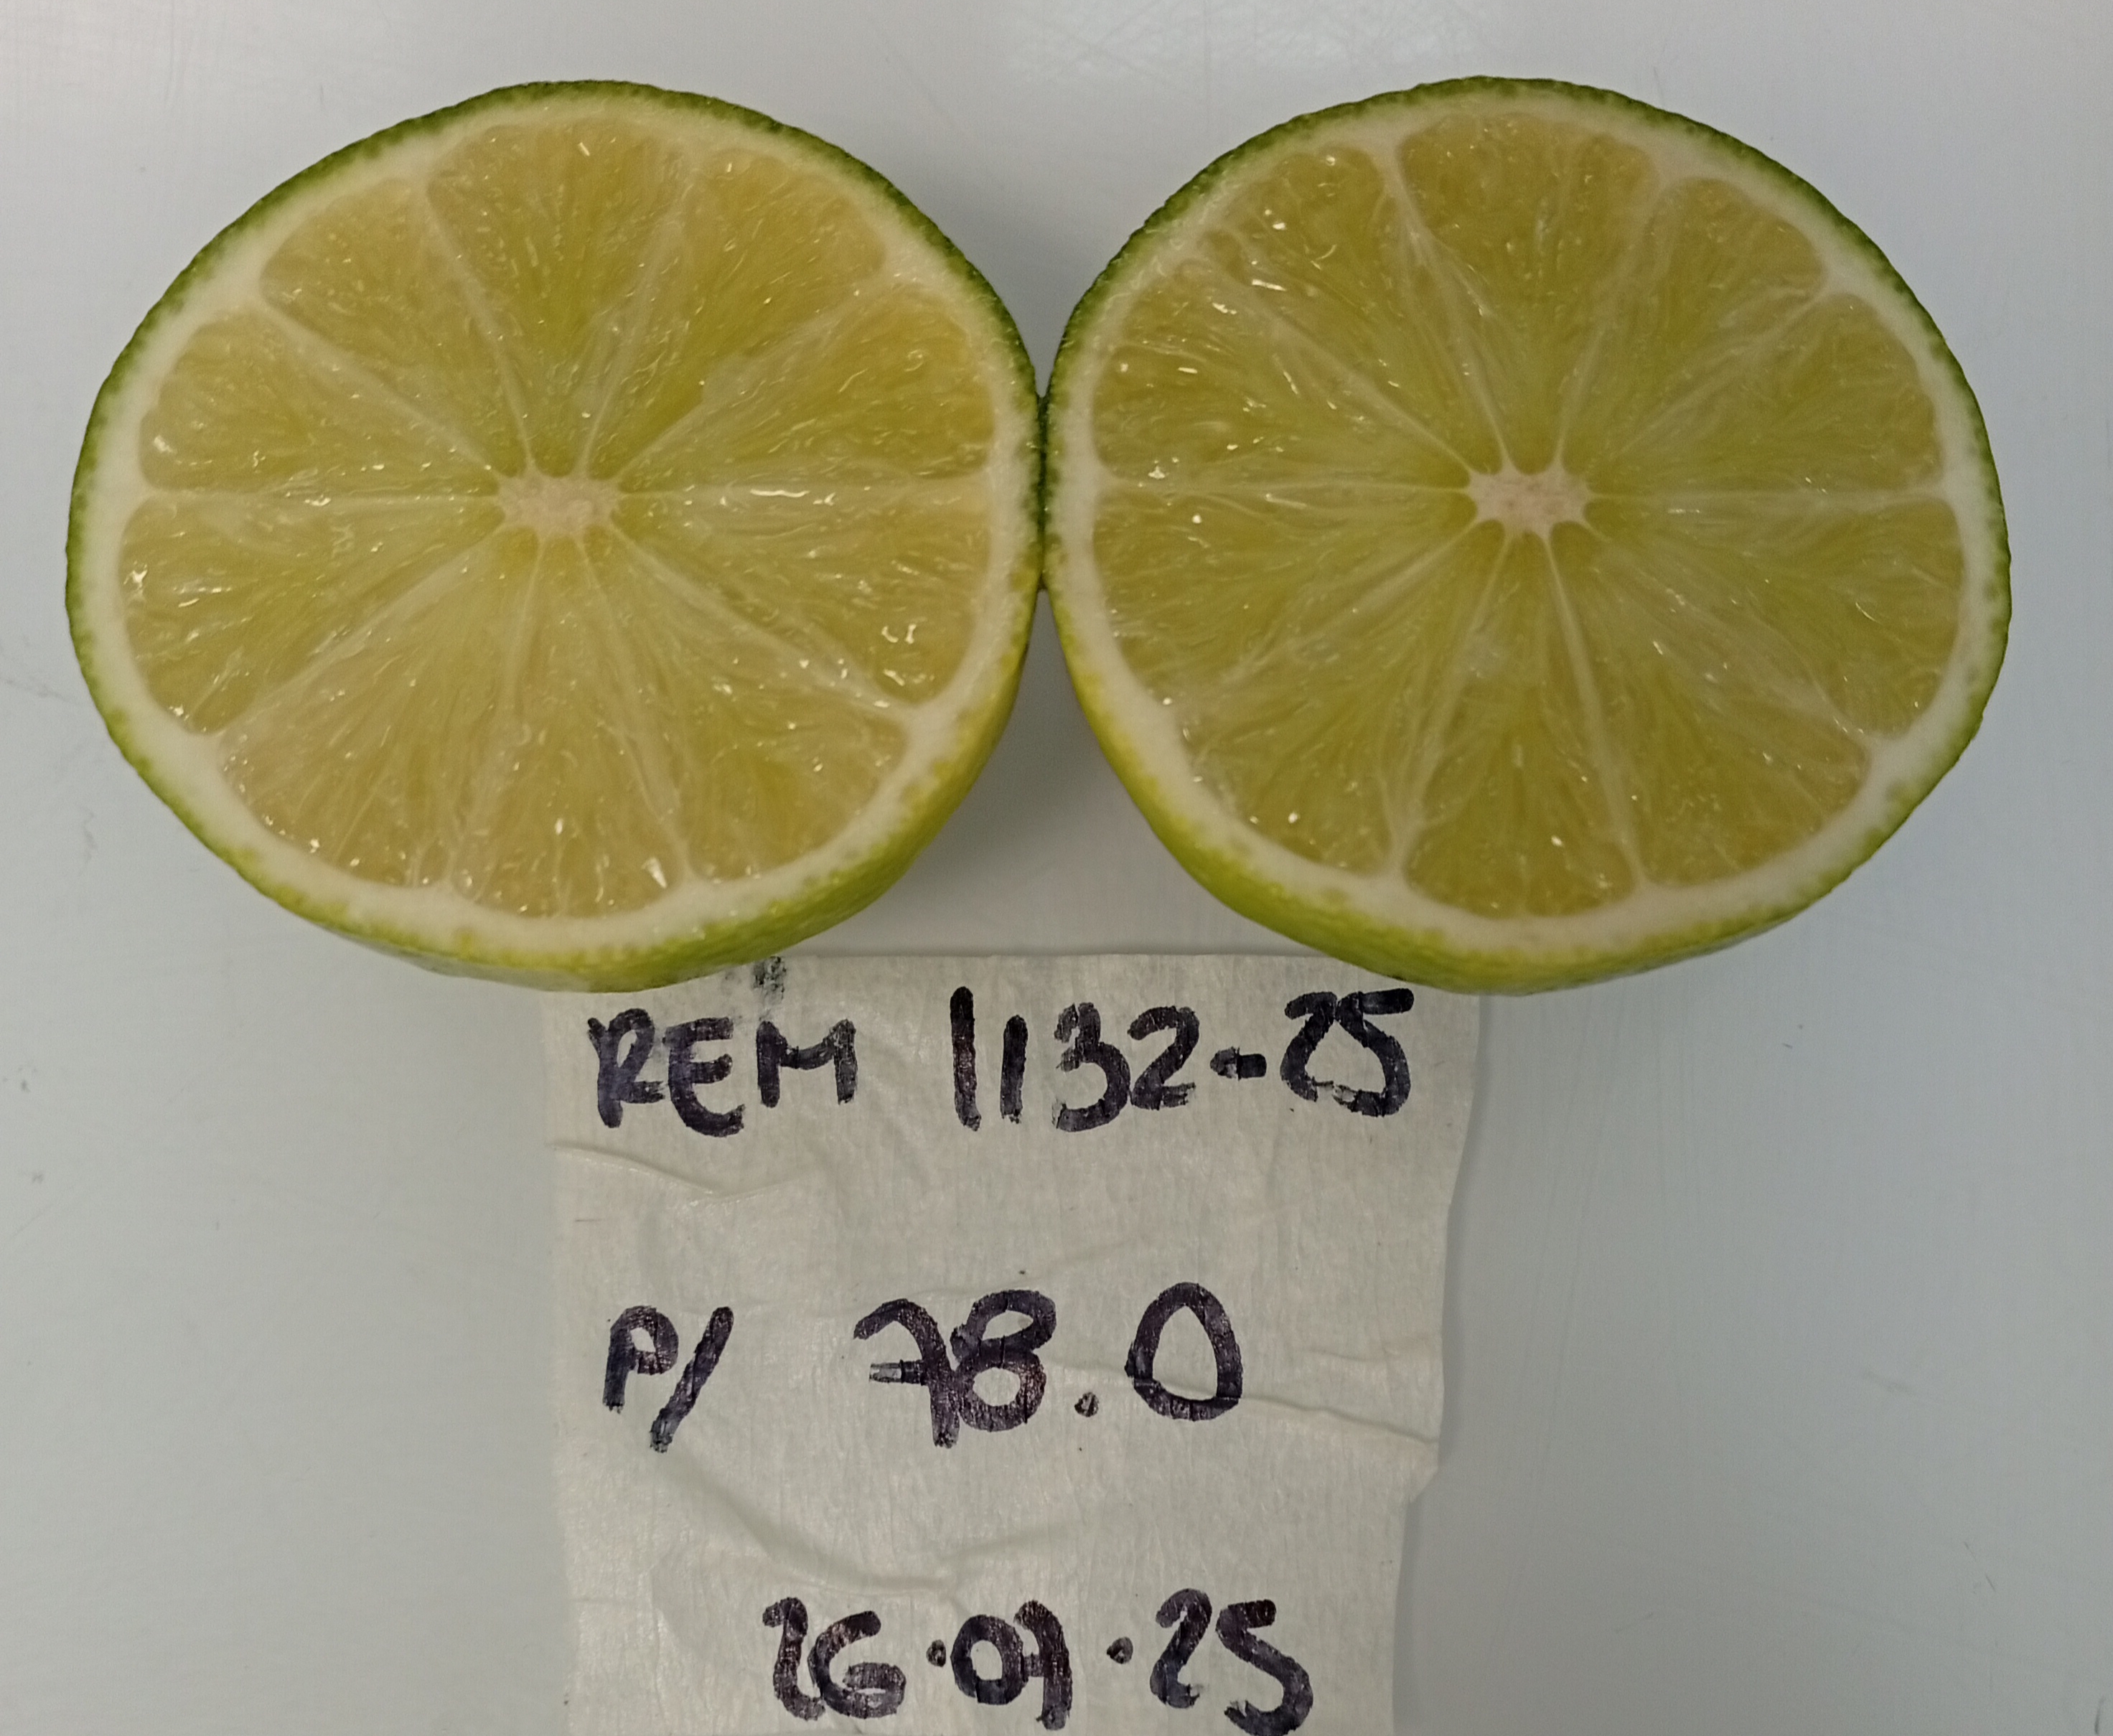 REM 1132-25
P/ 78.0
26.07.25